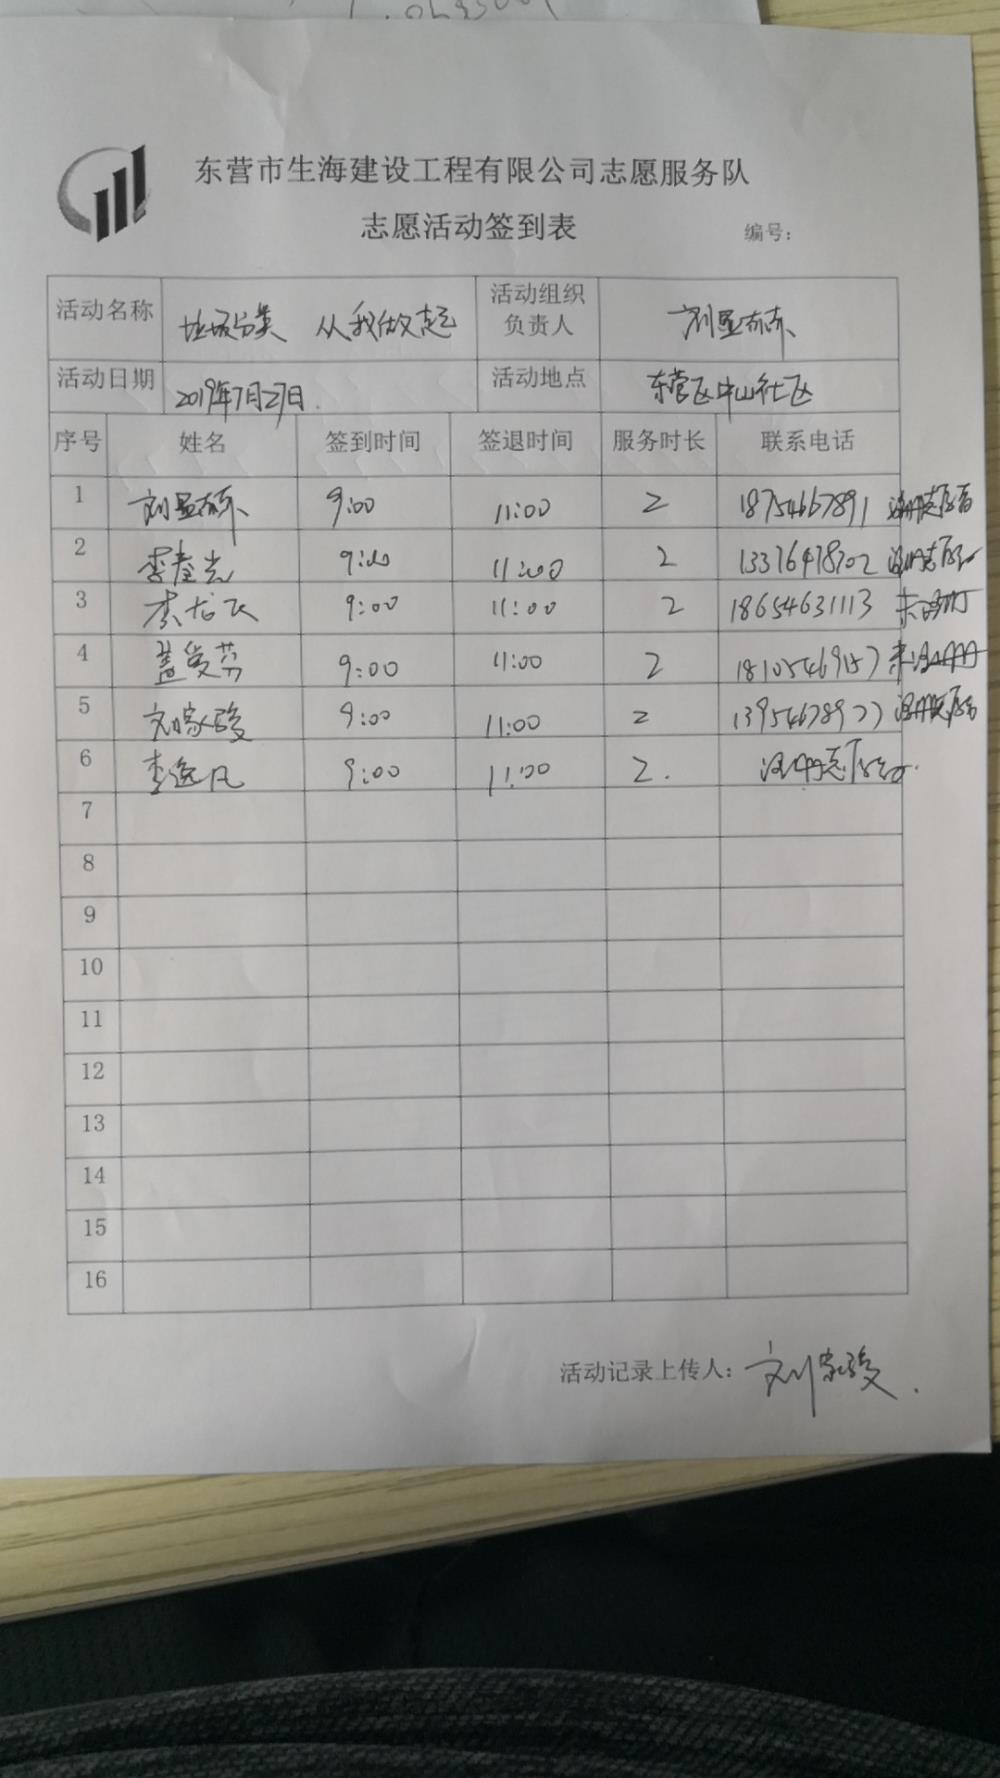 东营市生海建设工程有限公司志愿服务队
志愿活动签到表 编号：
活动名称 垃圾分类 从我做起 活动组织负责人 刘显
活动日期 2019年7月27日. 活动地点 东营区中山社区
序号 姓名 签到时间 签退时间 服务时长 联系电话
1 刘显 9:00 11:00 2 18754667891 注册志愿者
2 李 光 9:00 11:00 2 13376478702 注册志愿者
3 李龙飞 9:00 11:00 2 18654631113 未注册
4 盖爱芬 9:00 11:00 2 18105469157 未注册
5 刘家骏 9:00 11:00 2 13954678977 注册志愿者
6 李逸凡 9:00 11:00 2. 注册志愿者.
7
8
9
10
11
12
13
14
15
16
活动记录上传人：刘家骏.